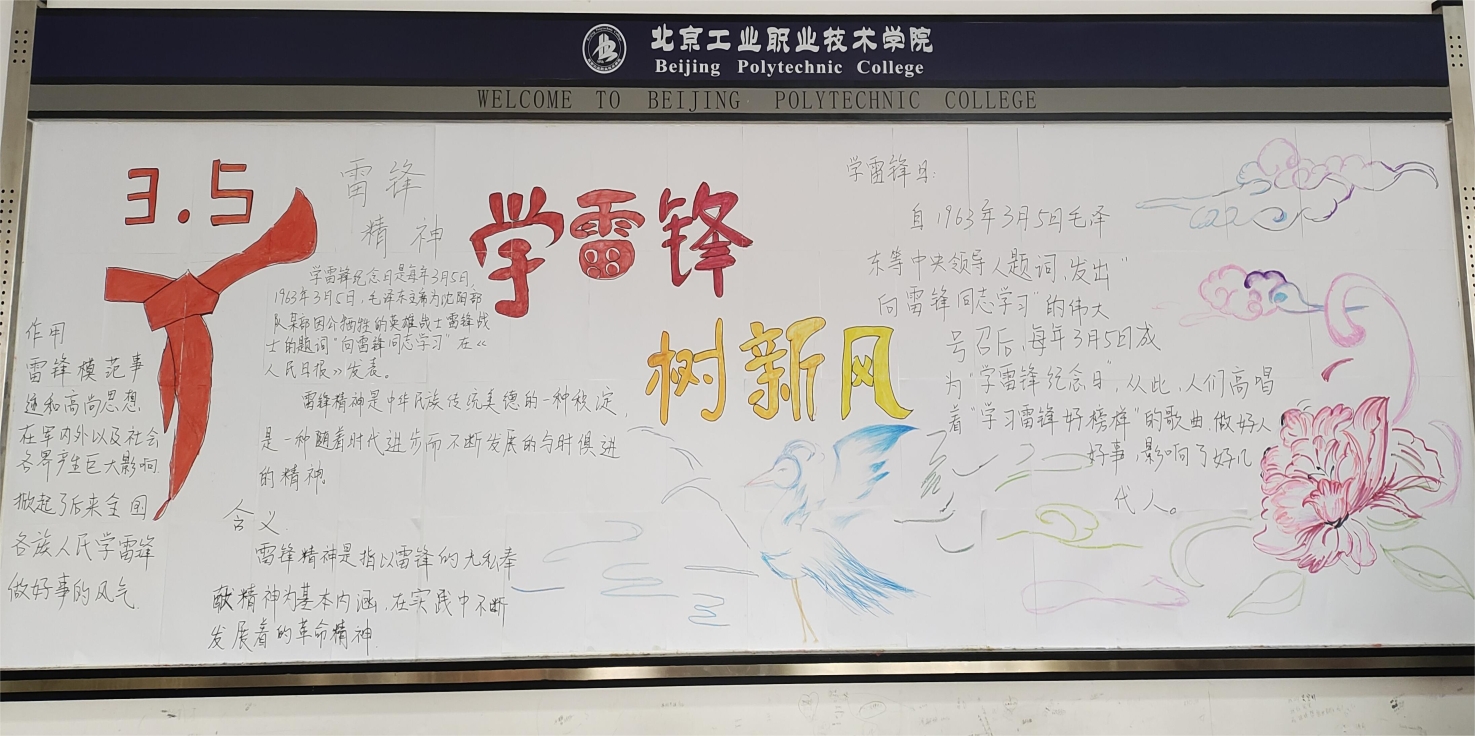 北京工业职业技术学院
Beijing Polytechnic College
WELCOME TO BEIJING POLYTECHNIC COLLEGE
3.5
学雷锋
树新风
作用
雷锋模范事
迹和高尚思想
在军内外以及社会
各界产生巨大影响
掀起了后来全国
各族人民学雷锋
做好事的风气
雷锋
精神
学雷锋纪念日是每年3月5日,
1963年3月5日,毛泽东主席为沈阳部
队某部因公牺牲的英雄战士雷锋战
士的题词"向雷锋同志学习"在《
人民日报》发表。
雷锋精神是中华民族传统美德的一种积淀,
是一种随着时代进步而不断发展的与时俱进
的精神
含义
雷锋精神是指以雷锋的无私奉
献精神为基本内涵,在实践中不断
发展着的革命精神.
学雷锋日:
自1963年3月5日毛泽
东等中央领导人题词,发出"
向雷锋同志学习"的伟大
号召后,每年3月5日成
为"学雷锋纪念日",从此,人们高唱
着"学习雷锋好榜样"的歌曲做好人
好事,影响了好几
代人。